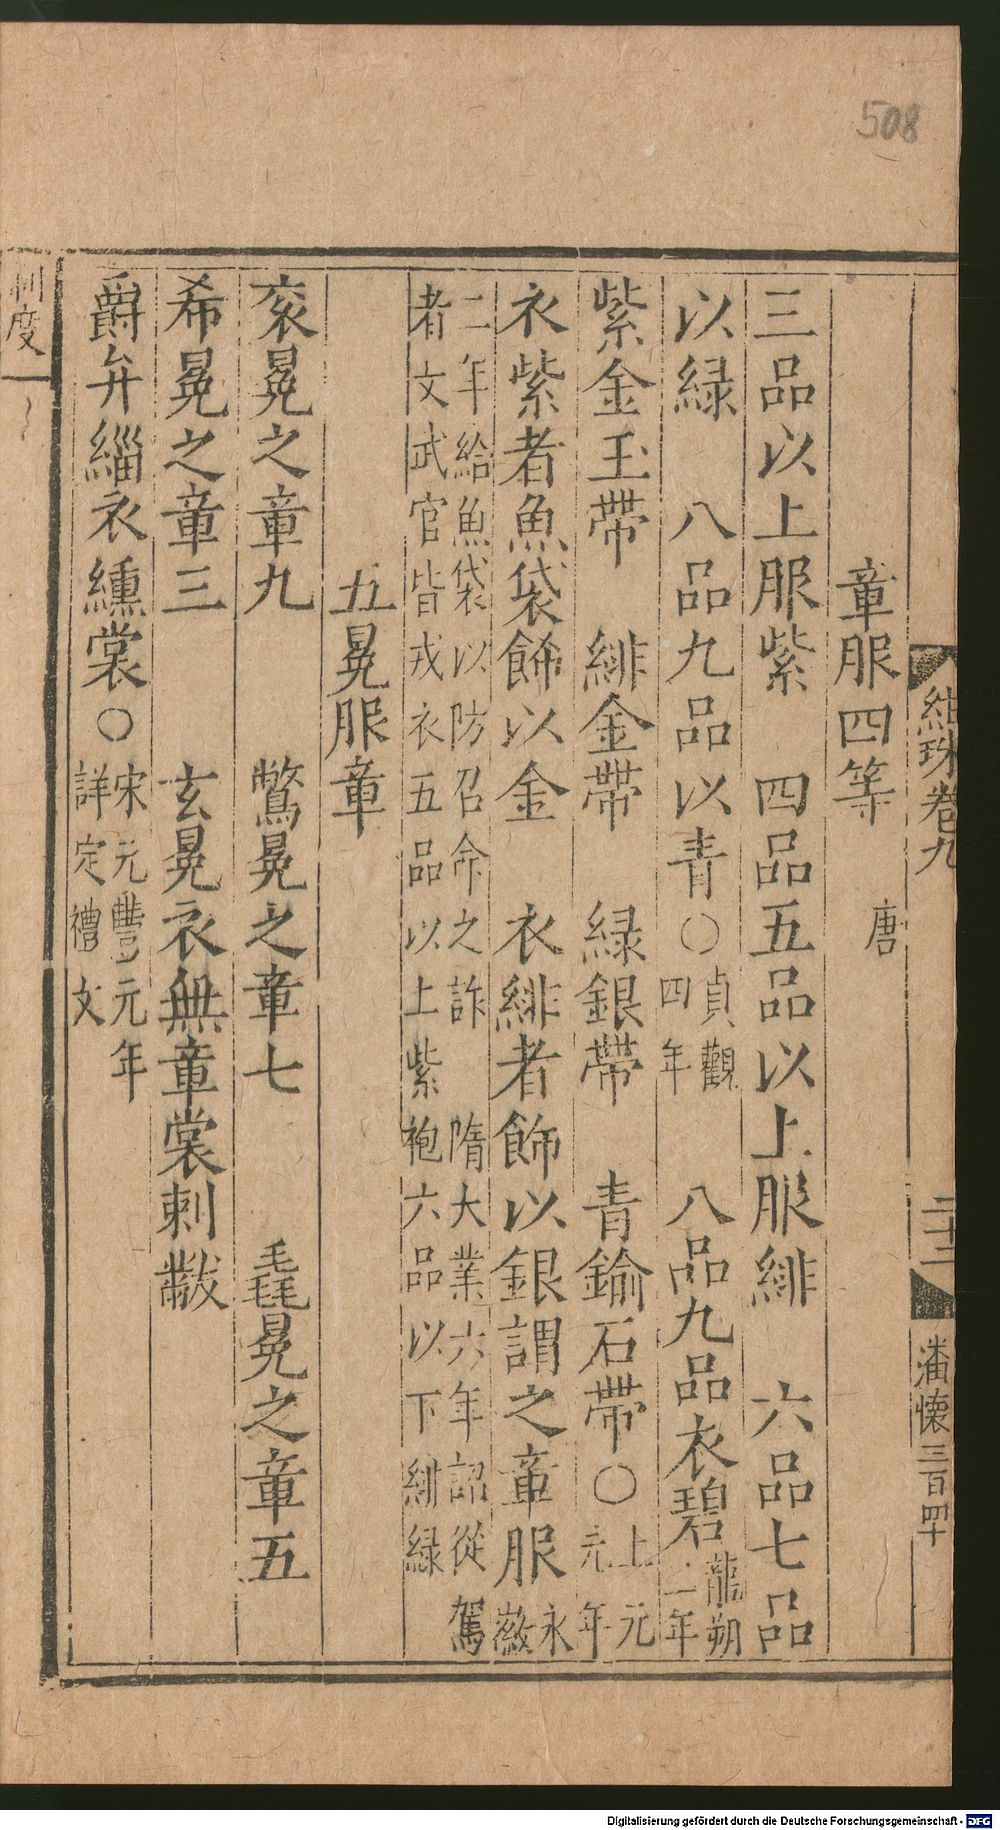 508
紺珠卷九
二十二
潘懐三百四十
章服四等 唐
三品以上服紫 四品五品以上服緋 六品七品
以緑 八品九品以青○貞觀四年 八品九品衣碧龍朔二年
紫金玉帶 緋金帶 緑銀帶 青鍮石帶○上元元年
衣紫者魚袋飾以金 衣緋者飾以銀謂之章服永徽
二年給魚袋以防召命之詐 隋大業六年詔從駕
者文武官皆戎衣五品以上紫袍六品以下緋緑
五冕服章
衮冕之章九 鷩冕之章七 毳冕之章五
希冕之章三 玄冕衣無章裳刺黻
爵弁緇衣纁裳○宋元豐元年詳定禮文
制度
Digitalisierung gefördert durch die Deutsche Forschungsgemeinschaft - DFG